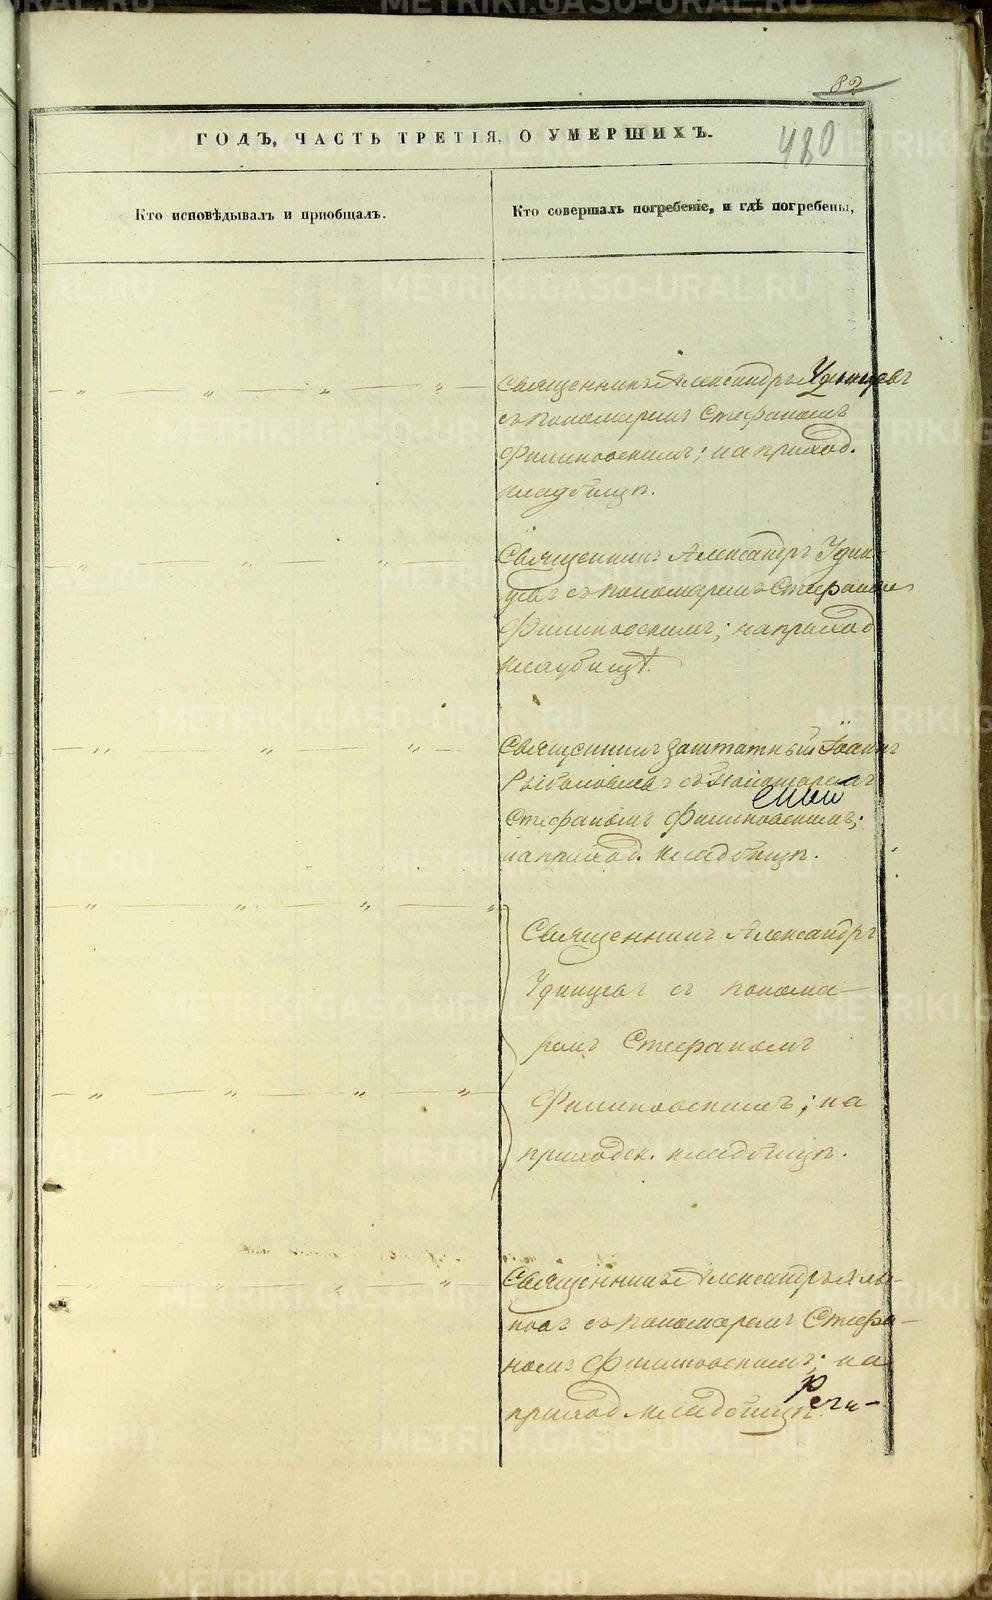 82
480
ГОДЪ, ЧАСТЬ ТРЕТІЯ, О УМЕРШИХЪ.
Кто исповѣдывалъ и пріобщалъ.
Кто совершалъ погребеніе, и гдѣ погребены,
Священникъ Александръ Удинцевъ
съ пономаремъ Стефаномъ
Филиповскимъ; на приход.
кладбищѣ.
Священникъ Александръ Удин-
цевъ съ пономаремъ Стефаномъ
Филиповскимъ; на приход
кладбищѣ.
Священникъ заштатный Іоаннъ
съ пономаремъ
Стефаномъ Филиповскимъ;
на приход. кладбищѣ.
Священникъ Александръ
Удинцевъ съ понома-
ремъ Стефаномъ
Филиповскимъ; на
приходск. кладбищѣ.
Священникъ Александръ
съ пономаремъ Стефа-
номъ Филиповскимъ; на
приход кладбищѣ.
METRIKI.GASO-URAL.RU